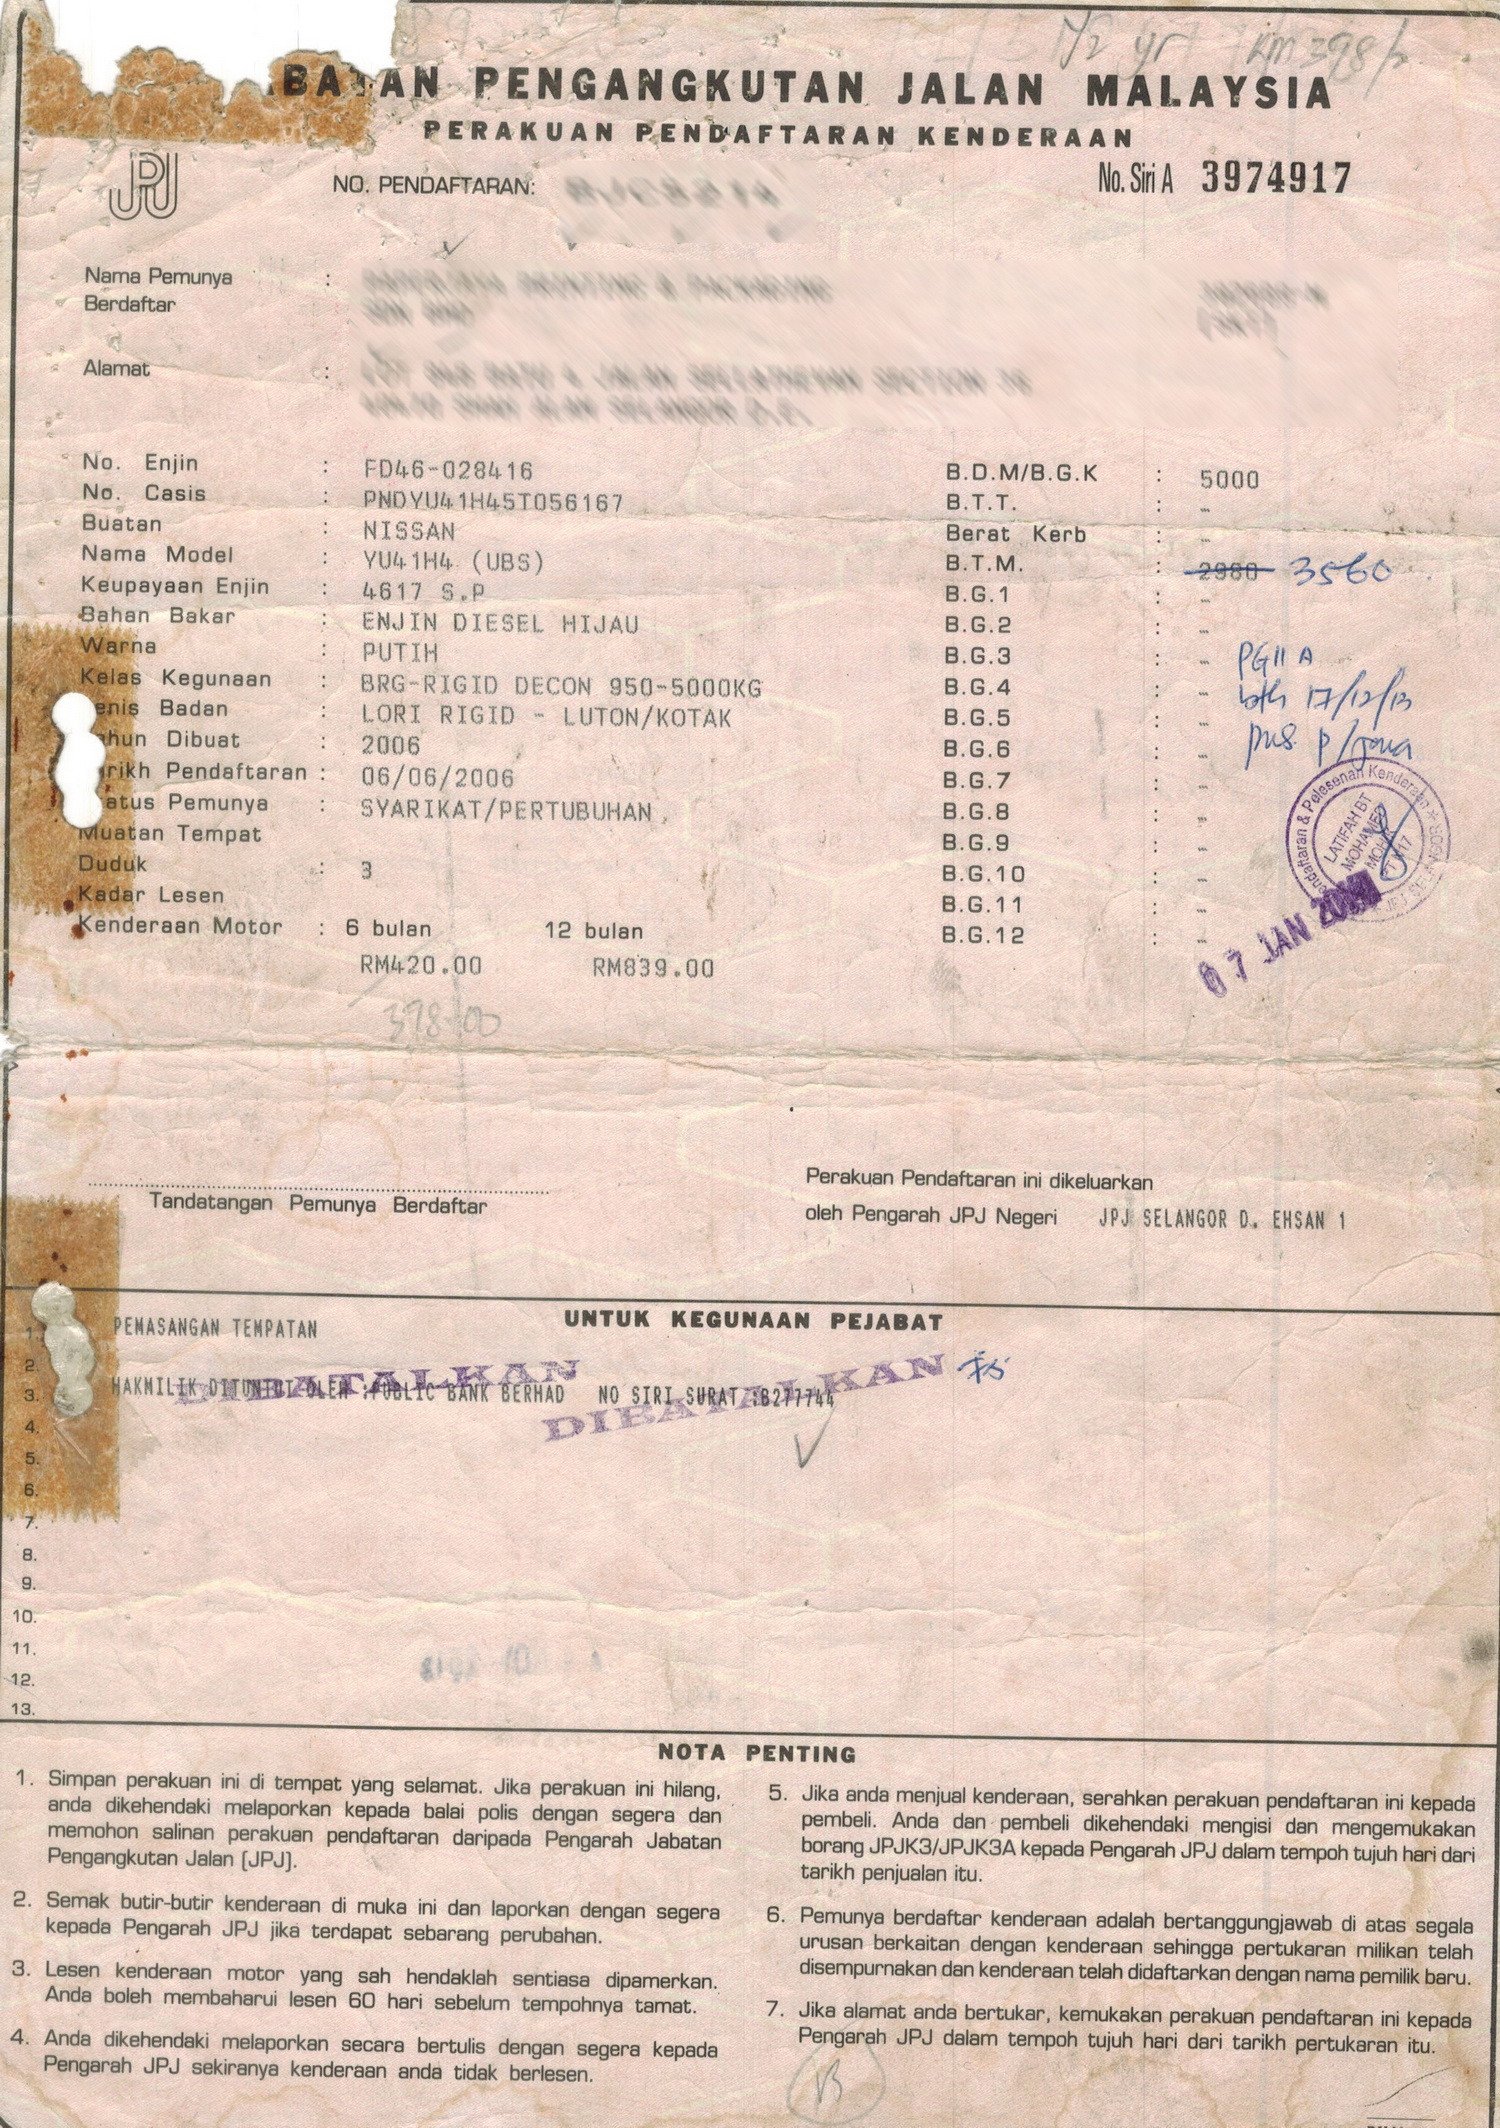 1/2 yr RM 398/-
BATAN PENGANGKUTAN JALAN MALAYSIA
PERAKUAN PENDAFTARAN KENDERAAN
JPJ
NO. PENDAFTARAN:
No. Siri A 3974917
Nama Pemunya :
Berdaftar
Alamat :
No. Enjin : FD46-028416
B.D.M/B.G.K : 5000
No. Casis : PNDYU41H45T056167
B.T.T. : -
Buatan : NISSAN
Berat Kerb : -
Nama Model : YU41H4 (UBS)
B.T.M. : 2980 3560
Keupayaan Enjin : 4617 S.P
B.G.1 : -
Bahan Bakar : ENJIN DIESEL HIJAU
B.G.2 : -
Warna : PUTIH
B.G.3 : - PG11 A
Kelas Kegunaan : BRG-RIGID DECON 950-5000KG
B.G.4 : - 17/12/13
enis Badan : LORI RIGID - LUTON/KOTAK
B.G.5 : -
ahun Dibuat : 2006
B.G.6 : -
rikh Pendaftaran : 06/06/2006
B.G.7 : -
atus Pemunya : SYARIKAT/PERTUBUHAN
B.G.8 : -
Muatan Tempat
B.G.9 : -
Duduk : 3
B.G.10 : -
Kadar Lesen
B.G.11 : -
Kenderaan Motor : 6 bulan 12 bulan
B.G.12 : -
RM420.00 RM839.00
398-00
ndaftaran & Pelesenan Kenderaan
LATIFAH BT
MOHAMED
07 JAN
Tandatangan Pemunya Berdaftar
Perakuan Pendaftaran ini dikeluarkan
oleh Pengarah JPJ Negeri JPJ SELANGOR D. EHSAN 1
UNTUK KEGUNAAN PEJABAT
1. PEMASANGAN TEMPATAN
2.
DIBATALKAN
3. HAKMILIK DITUNTUT OLEH :PUBLIC BANK BERHAD NO SIRI SURAT :B277744
DIBATALKAN
4.
5.
6.
7.
8.
9.
10.
11.
12.
13.
NOTA PENTING
1. Simpan perakuan ini di tempat yang selamat. Jika perakuan ini hilang,
anda dikehendaki melaporkan kepada balai polis dengan segera dan
memohon salinan perakuan pendaftaran daripada Pengarah Jabatan
Pengangkutan Jalan (JPJ).
2. Semak butir-butir kenderaan di muka ini dan laporkan dengan segera
kepada Pengarah JPJ jika terdapat sebarang perubahan.
3. Lesen kenderaan motor yang sah hendaklah sentiasa dipamerkan.
Anda boleh membaharui lesen 60 hari sebelum tempohnya tamat.
4. Anda dikehendaki melaporkan secara bertulis dengan segera kepada
Pengarah JPJ sekiranya kenderaan anda tidak berlesen.
5. Jika anda menjual kenderaan, serahkan perakuan pendaftaran ini kepada
pembeli. Anda dan pembeli dikehendaki mengisi dan mengemukakan
borang JPJK3/JPJK3A kepada Pengarah JPJ dalam tempoh tujuh hari dari
tarikh penjualan itu.
6. Pemunya berdaftar kenderaan adalah bertanggungjawab di atas segala
urusan berkaitan dengan kenderaan sehingga pertukaran milikan telah
disempurnakan dan kenderaan telah didaftarkan dengan nama pemilik baru.
7. Jika alamat anda bertukar, kemukakan perakuan pendaftaran ini kepada
Pengarah JPJ dalam tempoh tujuh hari dari tarikh pertukaran itu.